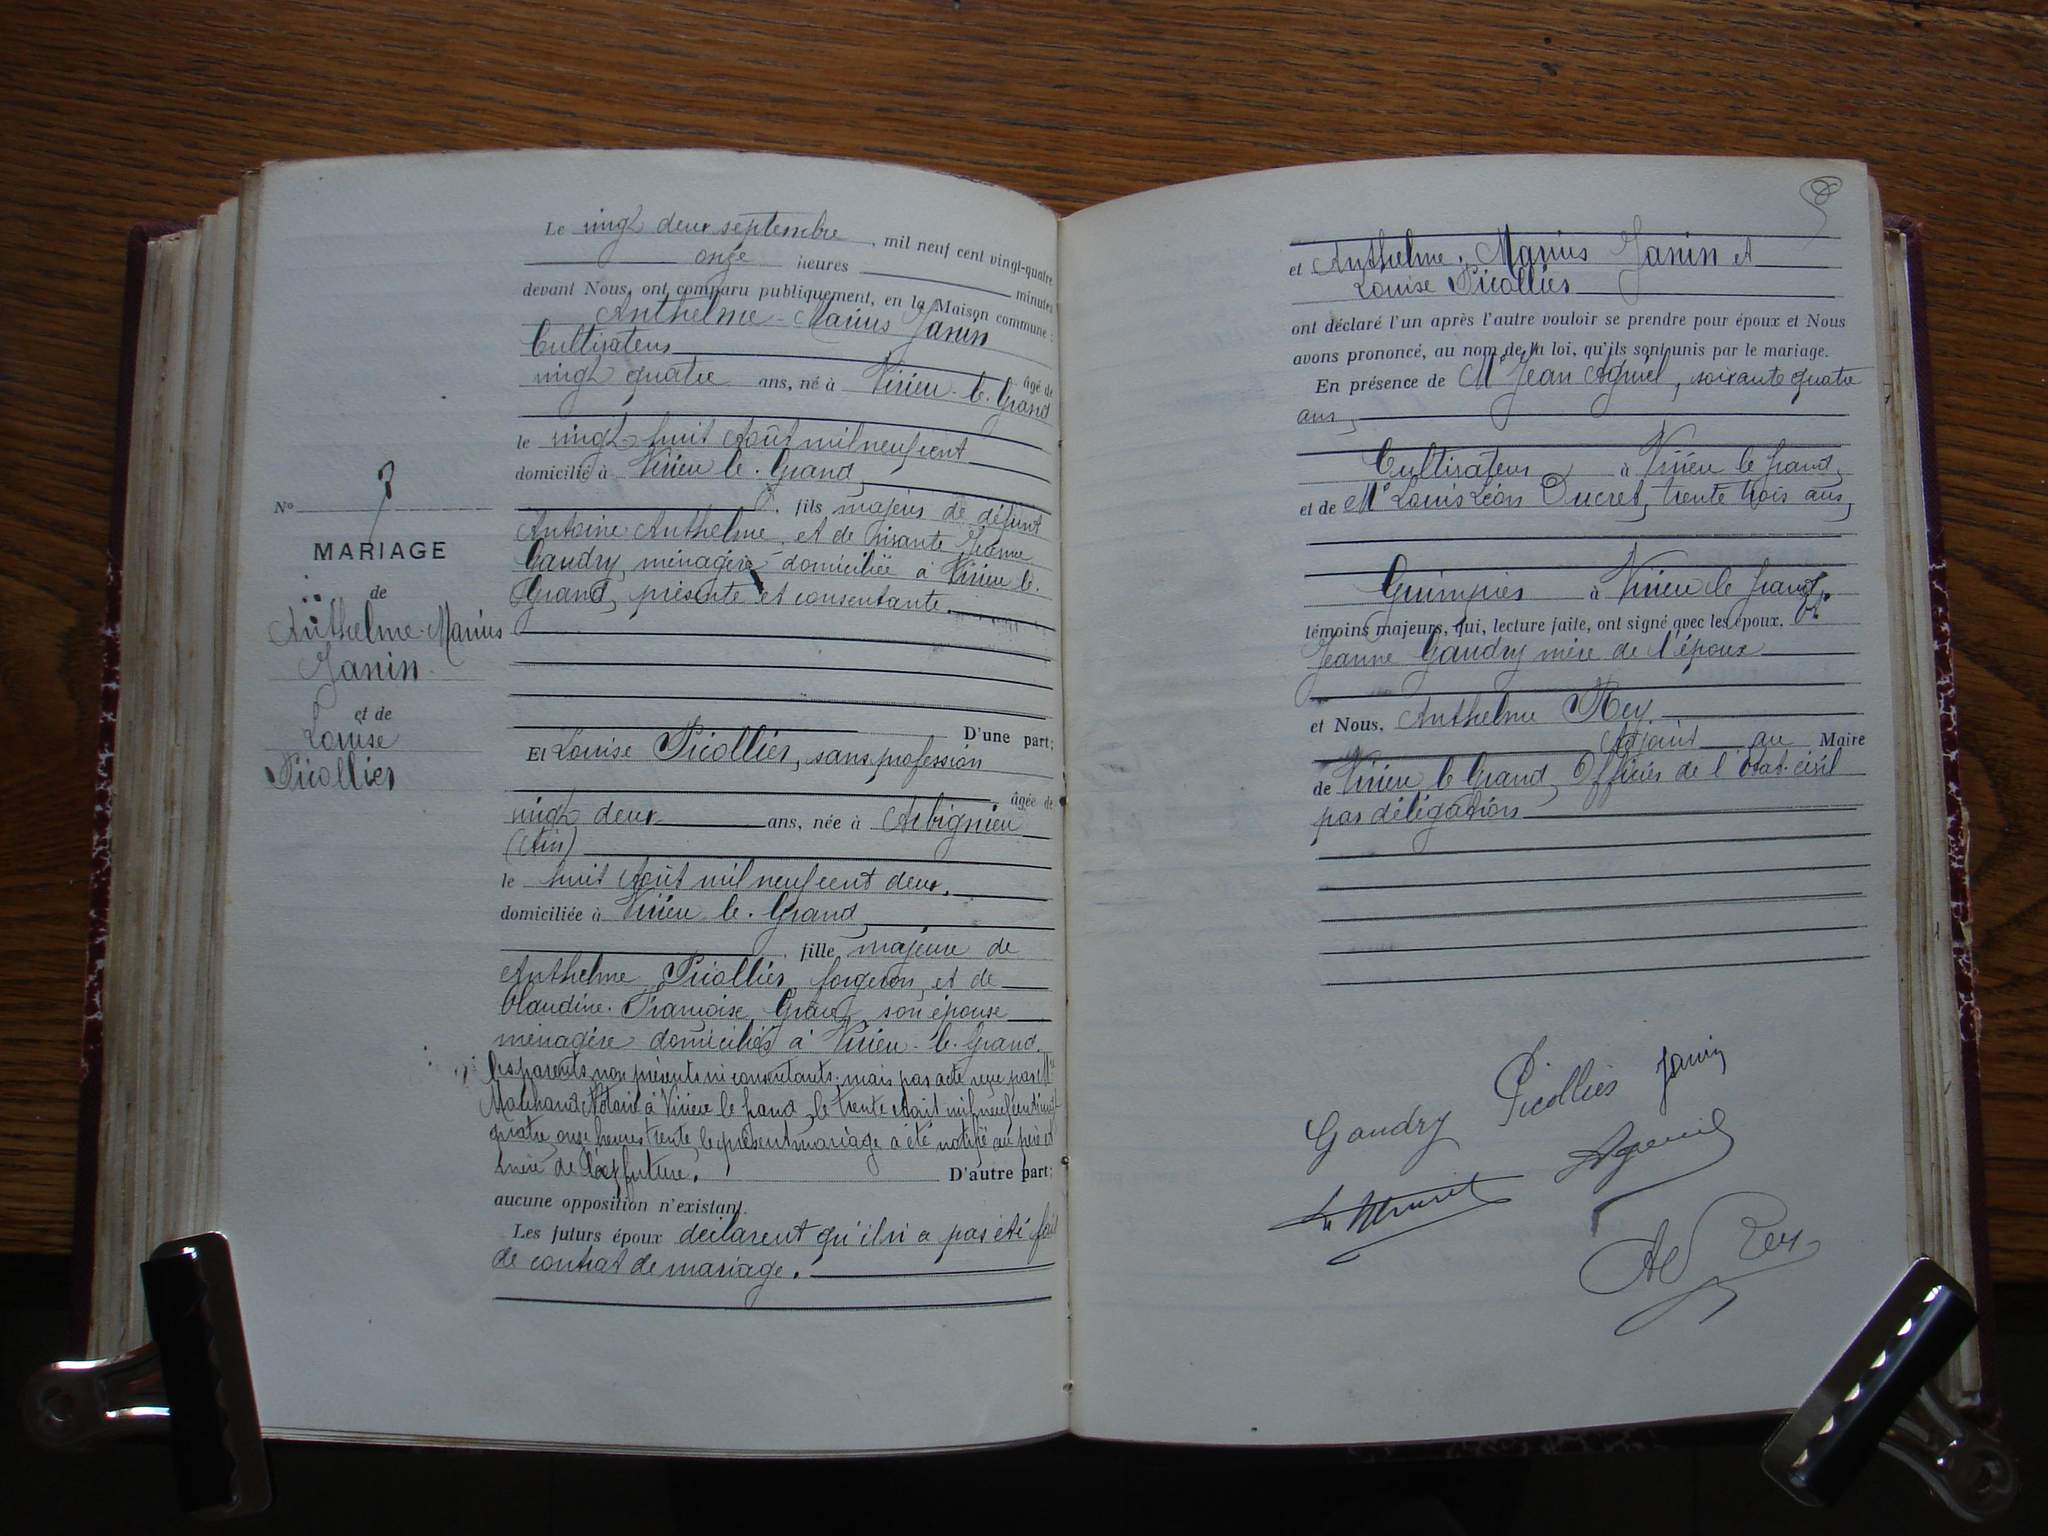 Le vingt deux septembre, mil neuf cent vingt-quatre
onze heures minutes
devant Nous, ont comparu publiquement, en la Maison commune :
Anthelme-Marius Janin
Cultivateur
âgé de
vingt quatre ans, né à Virieu-le-Grand
le vingt-huit Août mil neuf cent
domicilié à Virieu le-Grand
, fils majeur de défunt
Antoine Anthelme, et de vivante Jeanne
Gaudry, ménagère domiciliée à Virieu le-
Grand, présente et consentante.
N° 7
MARIAGE
de
Anthelme-Marius
Janin
et de
Louise
Picollier
D'une part;
Et Louise Picollier, sans profession
âgée de
vingt deux ans, née à Arbignieu
(Ain)
le huit Août mil neuf cent deux,
domiciliée à Virieu le-Grand
, fille majeure de
Anthelme Picollier, forgeron, et de
Claudine-Françoise son épouse
ménagère domiciliés à Virieu-le-Grand.
les parents non présents ni consentants, mais par acte reçu par Me
Marchand Notaire à Virieu le Grand, le trente Août mil neuf cent vingt-
quatre, onze heures trente, le présent mariage a été notifié au père et
mère de la future.
D'autre part;
aucune opposition n'existant.
Les futurs époux déclarent qu'il n'a pas été fait
de contrat de mariage.
et Anthelme, Marius Janin et
Louise Picollier
ont déclaré l'un après l'autre vouloir se prendre pour époux et Nous
avons prononcé, au nom de la loi, qu'ils sont unis par le mariage.
En présence de Mr Jean soixante quatre
ans,
Cultivateur à Virieu le Grand,
et de Mr Louis Léon Ducret, trente trois ans,
Guimpier à Virieu le Grand,
témoins majeurs, qui, lecture faite, ont signé avec les époux, et
Jeanne Gaudry mère de l'époux
et Nous, Anthelme Rey
Adjoint au Maire
de Virieu le Grand, Officier de l'état-civil
par délégation
Gaudry Picollier Janin
Rey